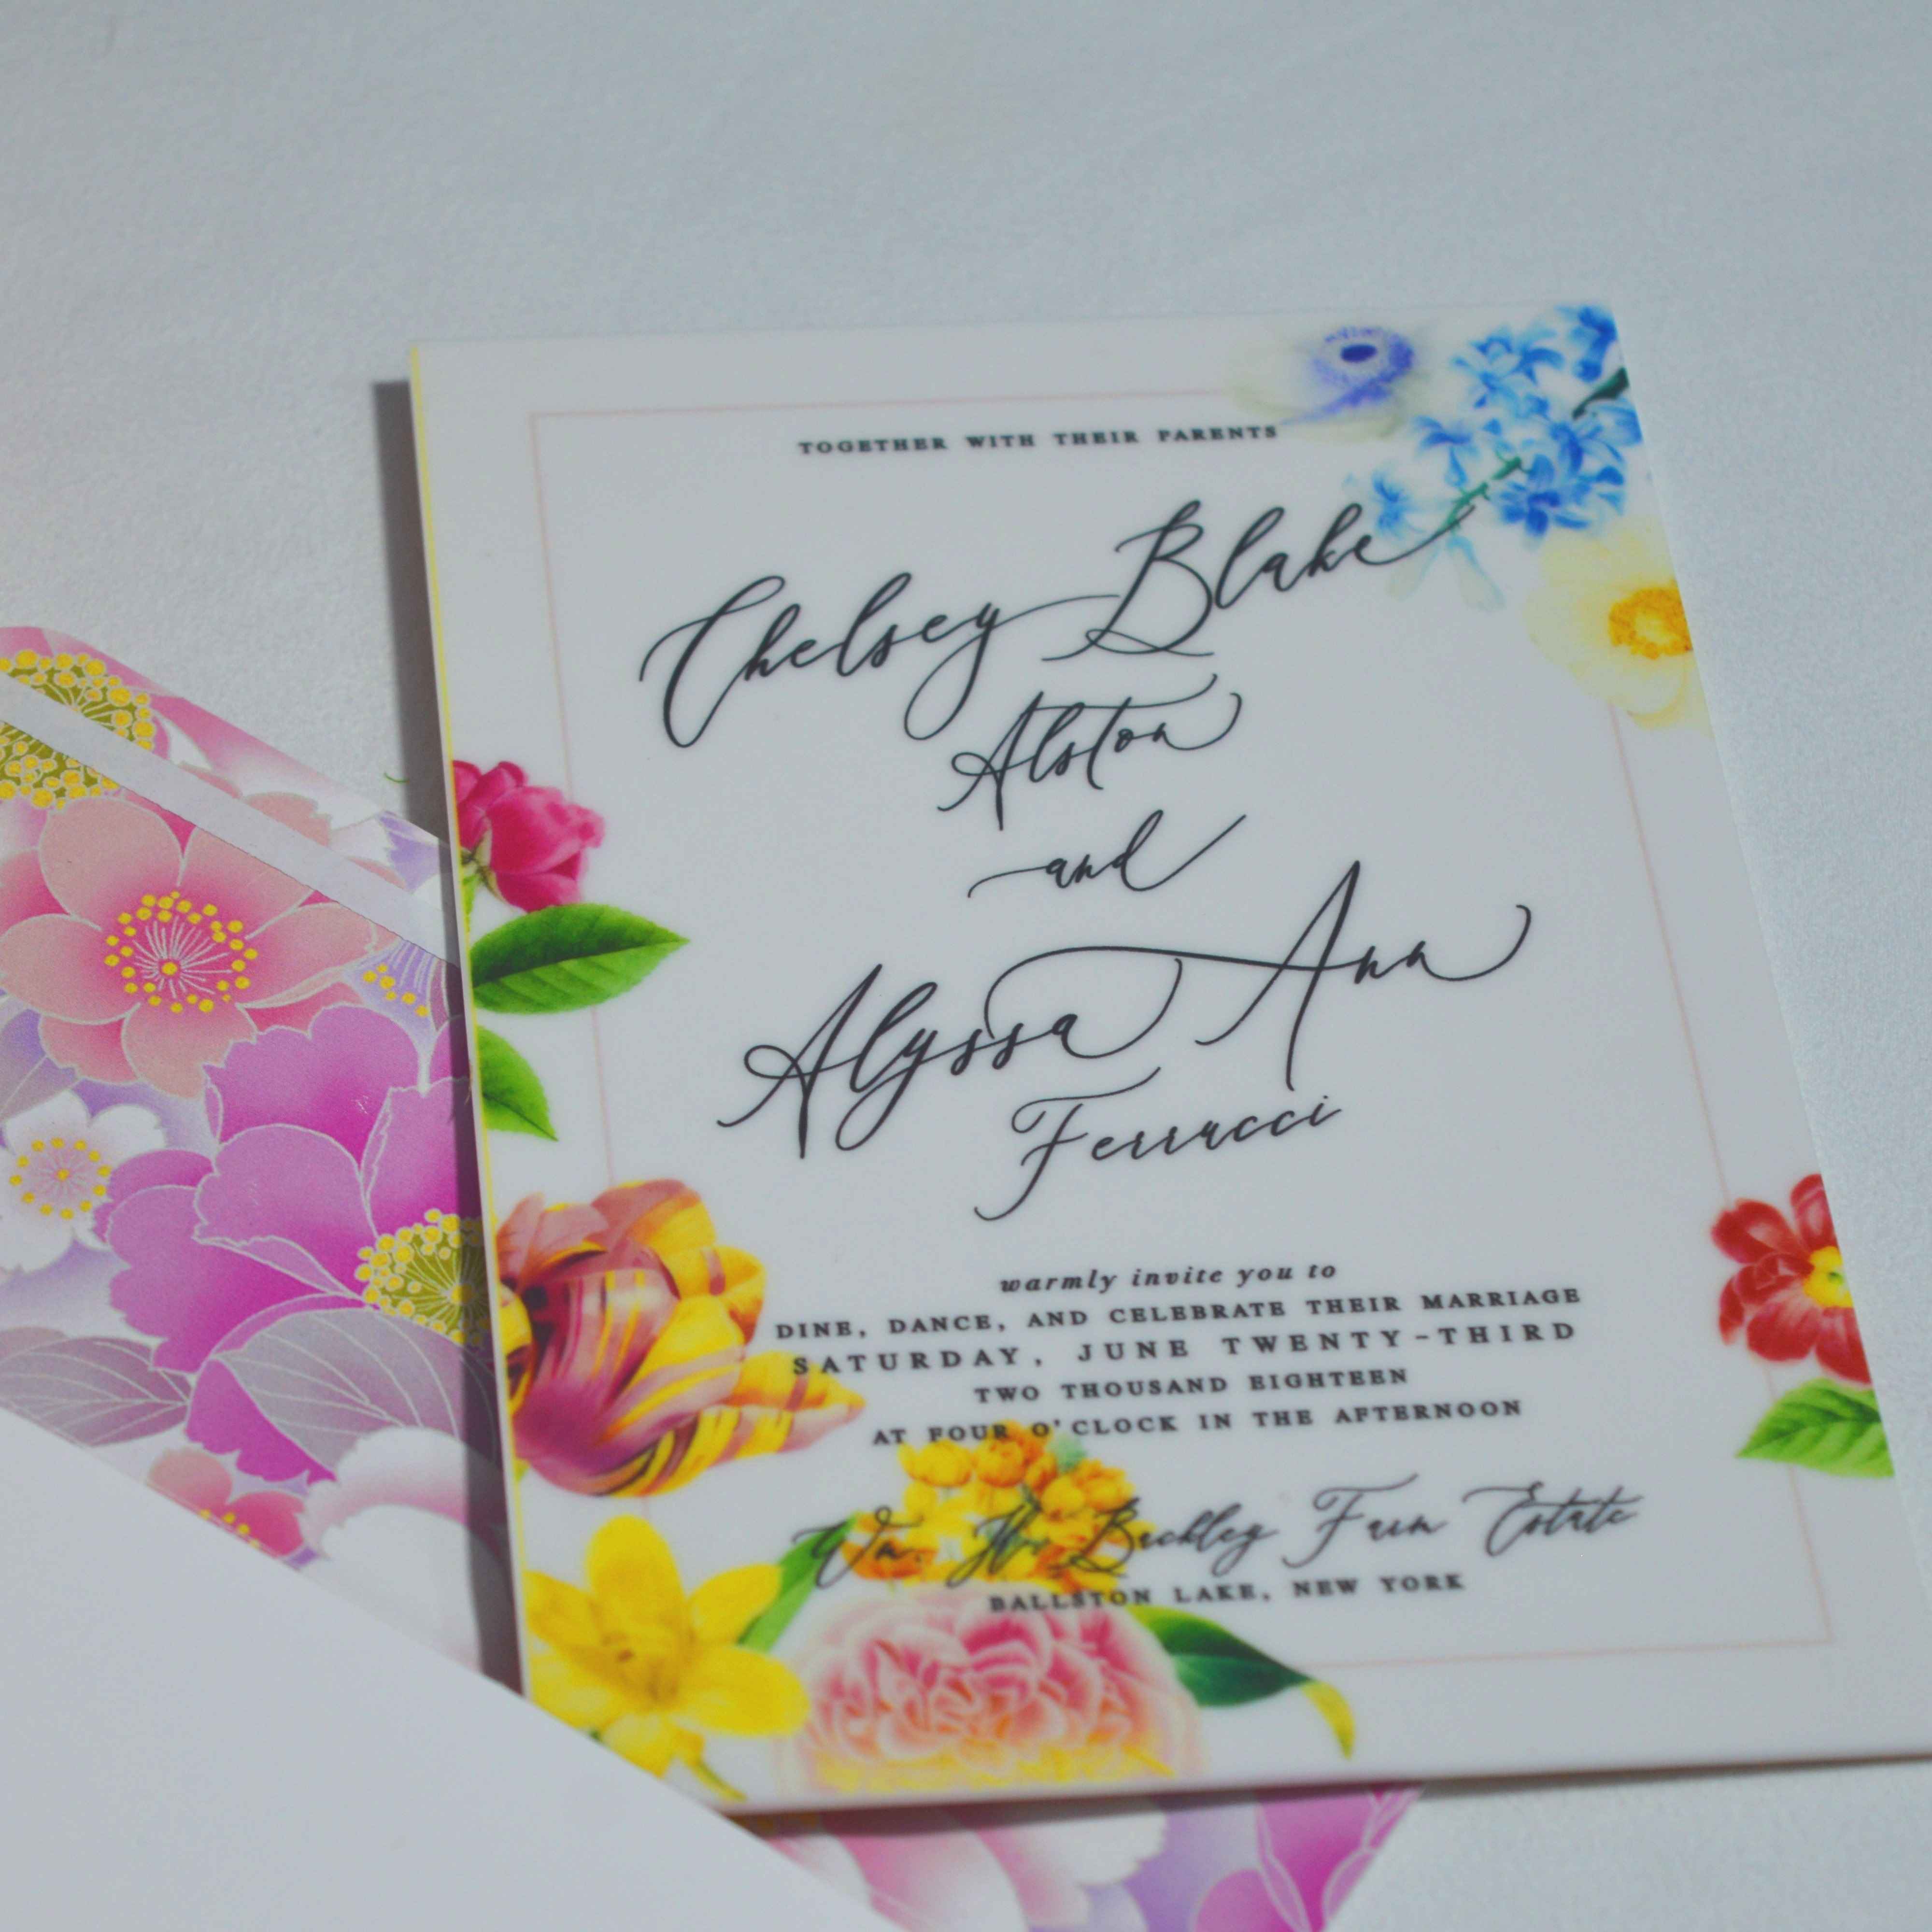 TOGETHER WITH THEIR PARENTS
Chelsey Blake
Alston
and
Alyssa Ann
Ferrucci
warmly invite you to
DINE, DANCE, AND CELEBRATE THEIR MARRIAGE
SATURDAY, JUNE TWENTY-THIRD
TWO THOUSAND EIGHTEEN
AT FOUR O'CLOCK IN THE AFTERNOON
Estate
BALLSTON LAKE, NEW YORK